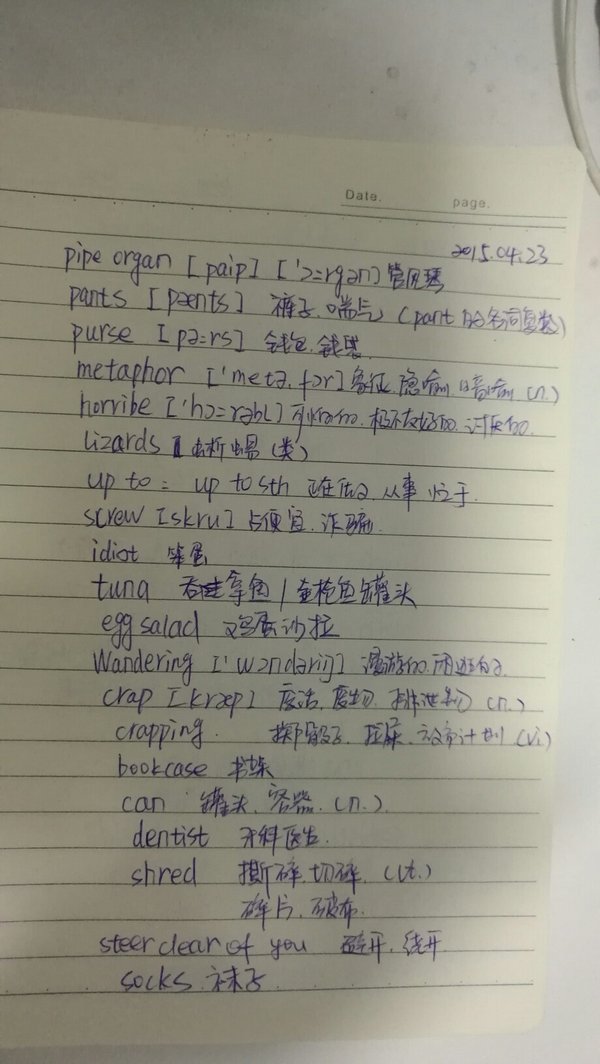 Date. page.
2015.04.23
pipe organ [paip] ['ɔ=rgən] 管风琴
pants [pænts] 裤子,喘气 (pant的名词复数)
purse [pə=rs] 钱包,钱袋
metaphor ['metə,fɔr] 象征,隐喻,暗喻 (n.)
horribe ['hɔ=rəbl] 可怕的.极不友好的.讨厌的.
lizards 蜥蜴(类)
up to = up to sth 正在做,从事忙于.
screw [skru] 占便宜.诈骗.
idiot 笨蛋
tuna 吞拿鱼/金枪鱼罐头
egg salad 鸡蛋沙拉
Wandering ['wɔndəriŋ] 漫游的.闲逛的.
crap [kræp] 废话,废物,排泄物 (n.)
crapping. 掷骰子.拉屎.放弃计划 (vi)
bookcase 书架
can 罐头,容器.(n.).
dentist 牙科医生.
shred 撕碎,切碎.(vt.)
碎片.破布.
steer clear of you 避开.绕开
socks 袜子